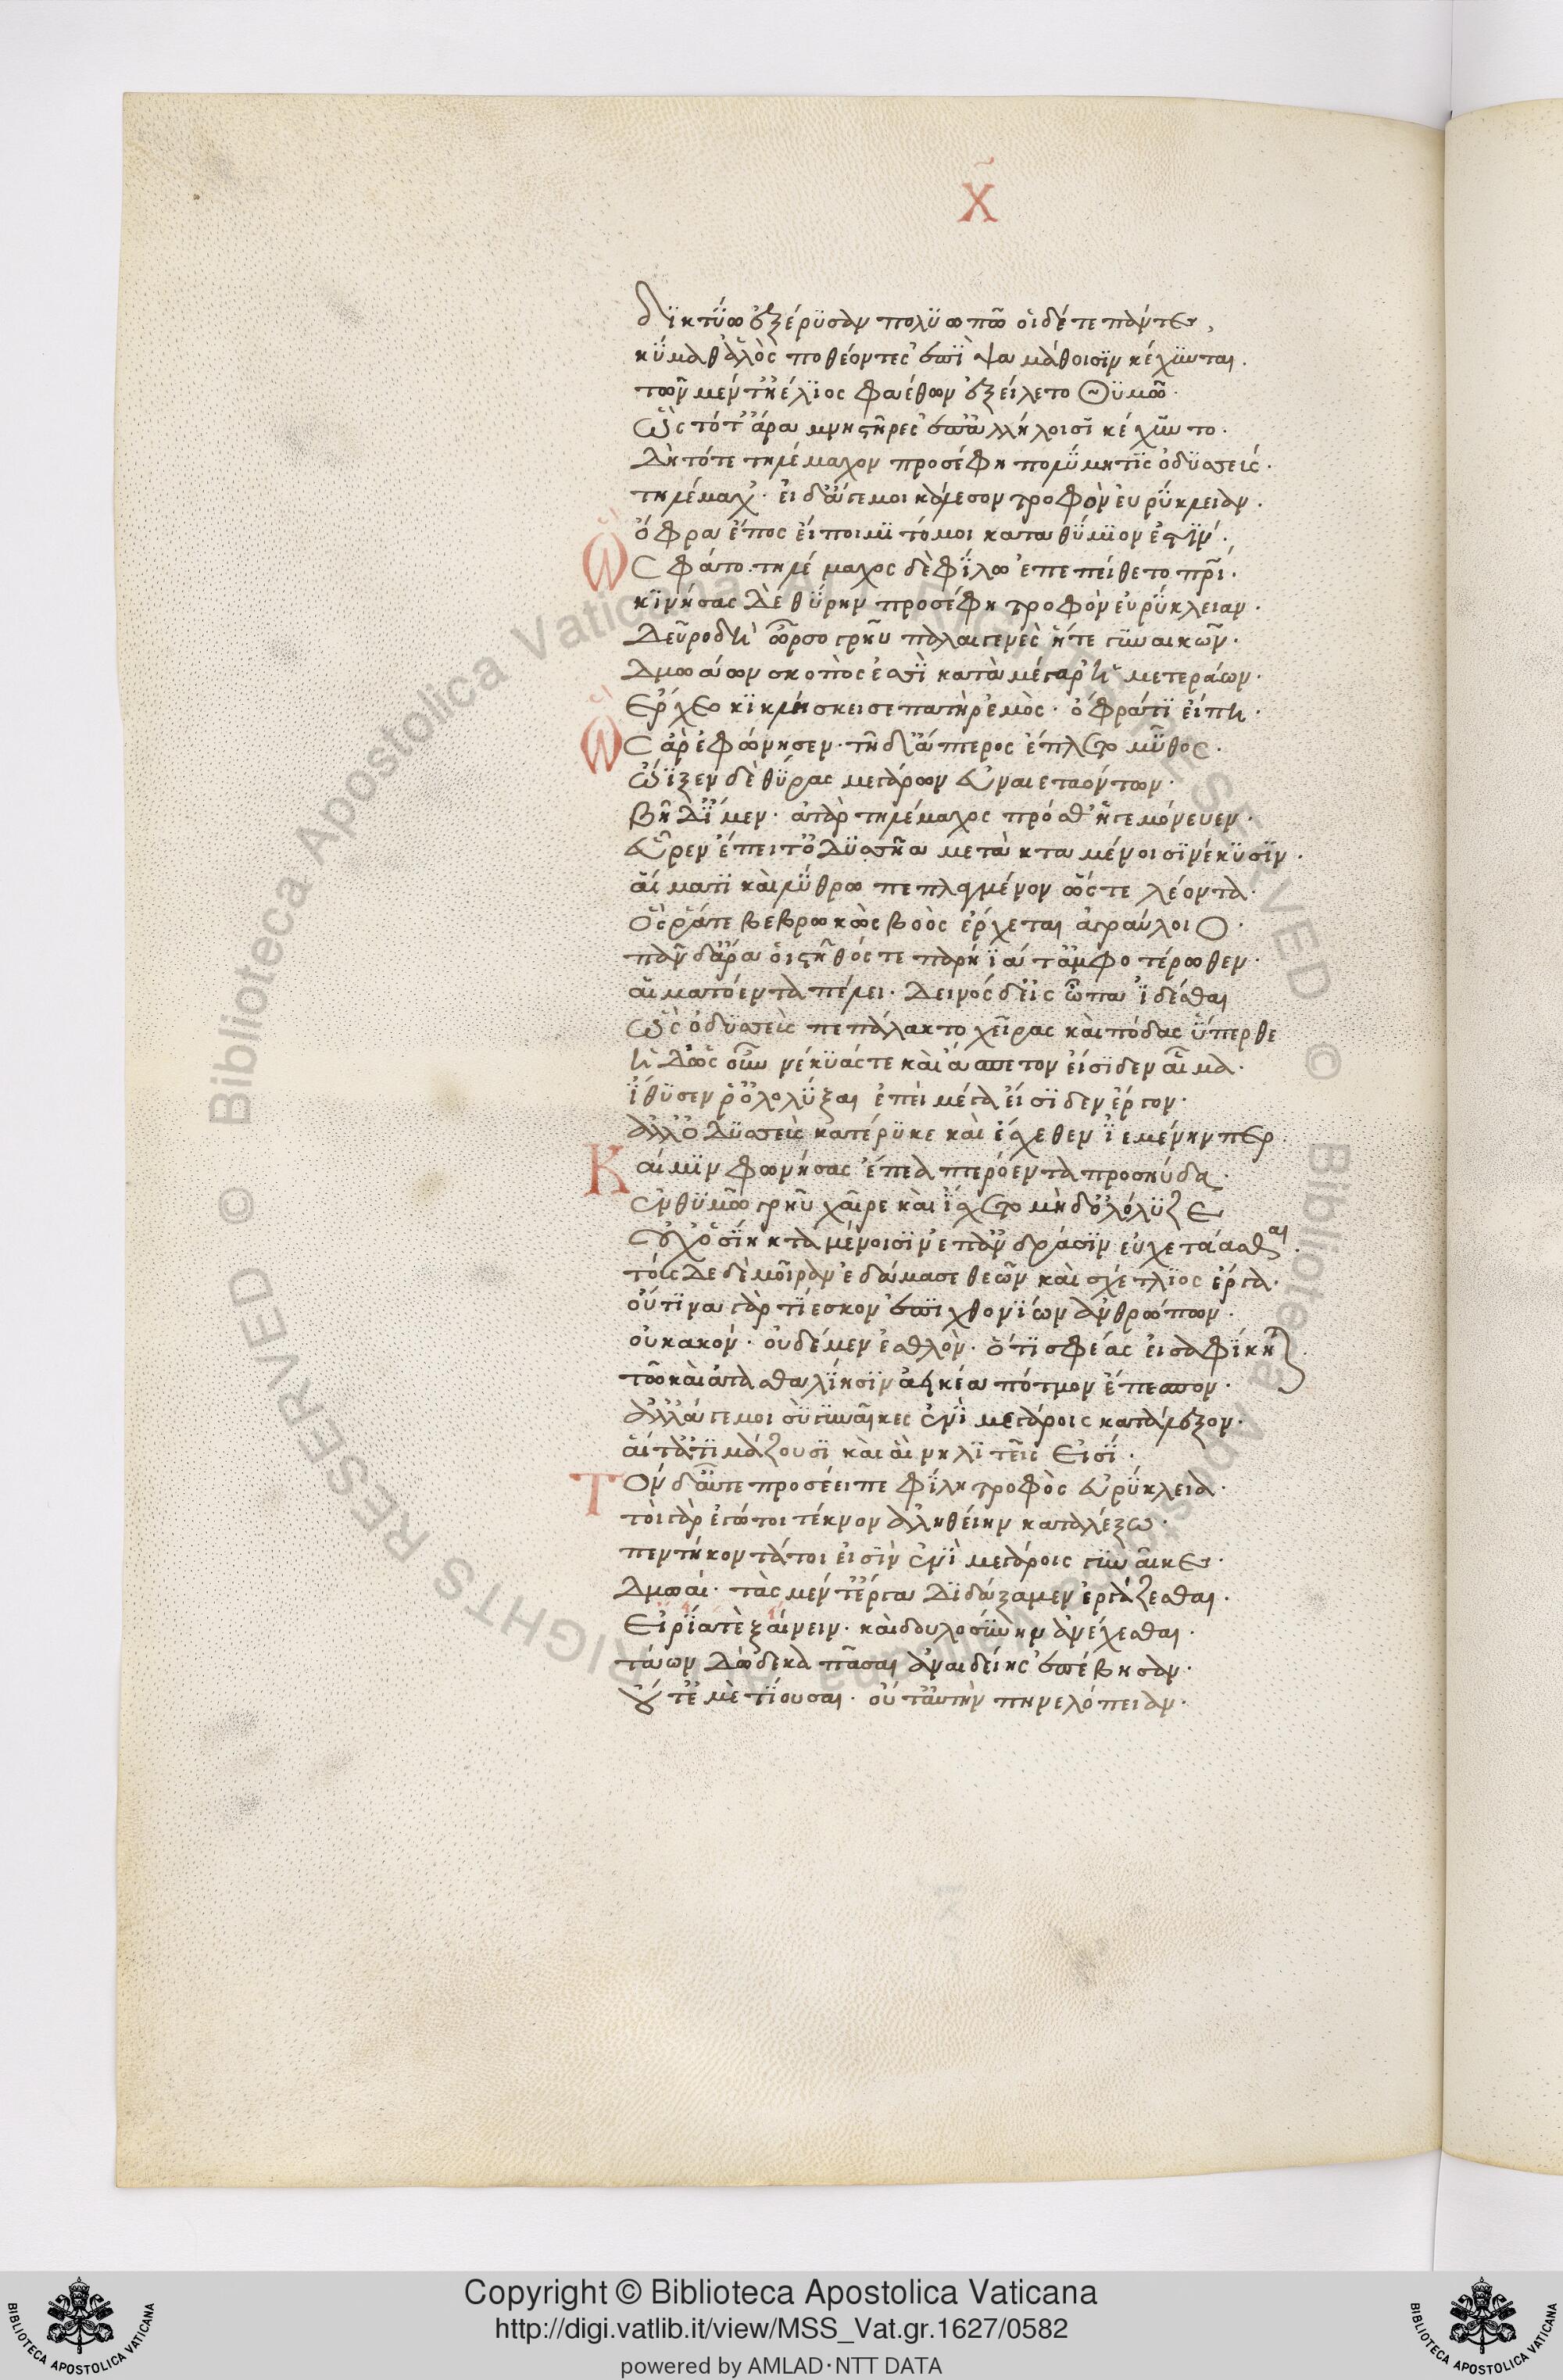 Χ
δικτύω ἐξέρυσαν πολυωπῶ οἱ δέ τε πάντες,
κύμαθ ἁλὸς ποθέοντες ἐπὶ ψαμάθοισιν κέχυνται.
τῶν μέν τ ἠέλιος φαέθων ἐξείλετο θυμόν.
ὣς τότ ἄρα μνηστῆρες ἐπ ἀλλήλοισι κέχυντο.
δὴ τότε τηλέμαχον προσέφη πολύμητις ὀδυσσεύς.
τηλέμαχ. εἰ δ ἄγε μοι κάλεσον τροφὸν εὐρύκλειαν.
ὄφρα ἔπος εἴποιμι τό μοι καταθύμιον ἐστίν.
Ὣς φάτο. τηλέμαχος δὲ φίλω ἐπεπείθετο πρι.
κινήσας δὲ θύρην προσέφη τροφὸν εὐρύκλειαν.
δεῦρο δὴ ὄρσο γρηῢ παλαιγενὲς ἥτε γυναικῶν.
δμωάων σκοπὸς ἐσσὶ κατὰ μέγαρ ἡμετεράων.
ἔρχεο κικλήσκει σε πατὴρ ἐμὸς. ὄφρα τι εἴπη.
Ὣς ἄρ ἐφώνησεν. τῆ δ ἄπτερος ἔπλετο μῦθος.
ὤϊξεν δὲ θύρας μεγάρων εὐναιεταόντων.
βῆ δ ἴμεν. ἀτὰρ τηλέμαχος πρόσθ ἡγεμόνευεν.
εὗρεν ἔπειτ ὀδυσσῆα μετὰ κταμένοισι νέκυσιν.
αἵματι καὶ λύθρω πεπλαγμένον ὥς τε λέοντα.
ὅς ῥά τε βεβρωκὼς βοὸς ἔρχεται ἀγραύλοιο.
πᾶν δ ἄρα οἱ στῆθός τε παρήϊά τ ἀμφοτέρωθεν.
αἱματόεντα πέλει. δεινός δ εἰς ὦπα ἰδέσθαι
ὣς ὀδυσεὺς πεπάλακτο χεῖρας καὶ πόδας ὕπερθε
ἡ δ ὡς οὖν νέκυάς τε καὶ ἄσπετον εἴσιδεν αἷμα.
ἴθυσεν ῥ ὀλολύξαι ἐπεὶ μέγα εἴσιδεν ἔργον.
ἀλλ ὀδυσεὺς κατέρυκε καὶ ἔσχεθεν ἱεμένην περ.
Καί μιν φωνήσας ἔπεα πτερόεντα προσηύδα.
ἐν θυμῶ γρηῢ χαῖρε καὶ ἴσχεο μὴ δ ὀλόλυζε
οὐχ ὁσίη κταμένοισιν ἐπ ἀνδράσιν εὐχετάασθαι.
τούς δε δὲ μοῖρ ἀν ἐδάμασε θεῶν καὶ σχέτλιος ἔργα.
οὔτινα γὰρ τίεσκον ἐπιχθονίων ἀνθρώπων.
οὐ κακόν. οὐδέ μεν ἐσθλὸν. ὅτι σφέας εἰσαφίκηται
τῶ καὶ ἀτασθαλίησιν ἀεικέα πότμον ἔπεσπον.
ἀλλ ἄγε μοι σὺ γυναῖκες ἐνὶ μεγάροις κατάλεξον.
αἵ τ ἀτιμάζουσι καὶ αἳ νηλιτεῖς εἰσί.
Τὸν δ αὖτε προσέειπε φίλη τροφὸς εὐρύκλεια.
τοὶ γὰρ ἐγώ τοι τέκνον ἀληθείην καταλέξω.
πεντήκοντά τοι εἰσὶν ἐνὶ μεγάροις γυναῖκες.
δμωαί. τὰς μέν τ ἔργα διδάξαμεν ἐργάζεσθαι.
εἴριά τὲ ξαίνειν. καὶ δουλοσύνην ἀνέχεσθαι.
τάων δώδεκα πᾶσαι ἀναιδείης ἐπέβησαν.
οὔτ ἐμὲ τίουσαι. οὔτ αὐτὴν πηνελόπειαν.
Biblioteca Apostolica Vaticana
ALL RIGHTS RESERVED ©
Copyright © Biblioteca Apostolica Vaticana
http://digi.vatlib.it/view/MSS_Vat.gr.1627/0582
powered by AMLAD·NTT DATA
BIBLIOTECA APOSTOLICA VATICANA
BIBLIOTECA APOSTOLICA VATICANA